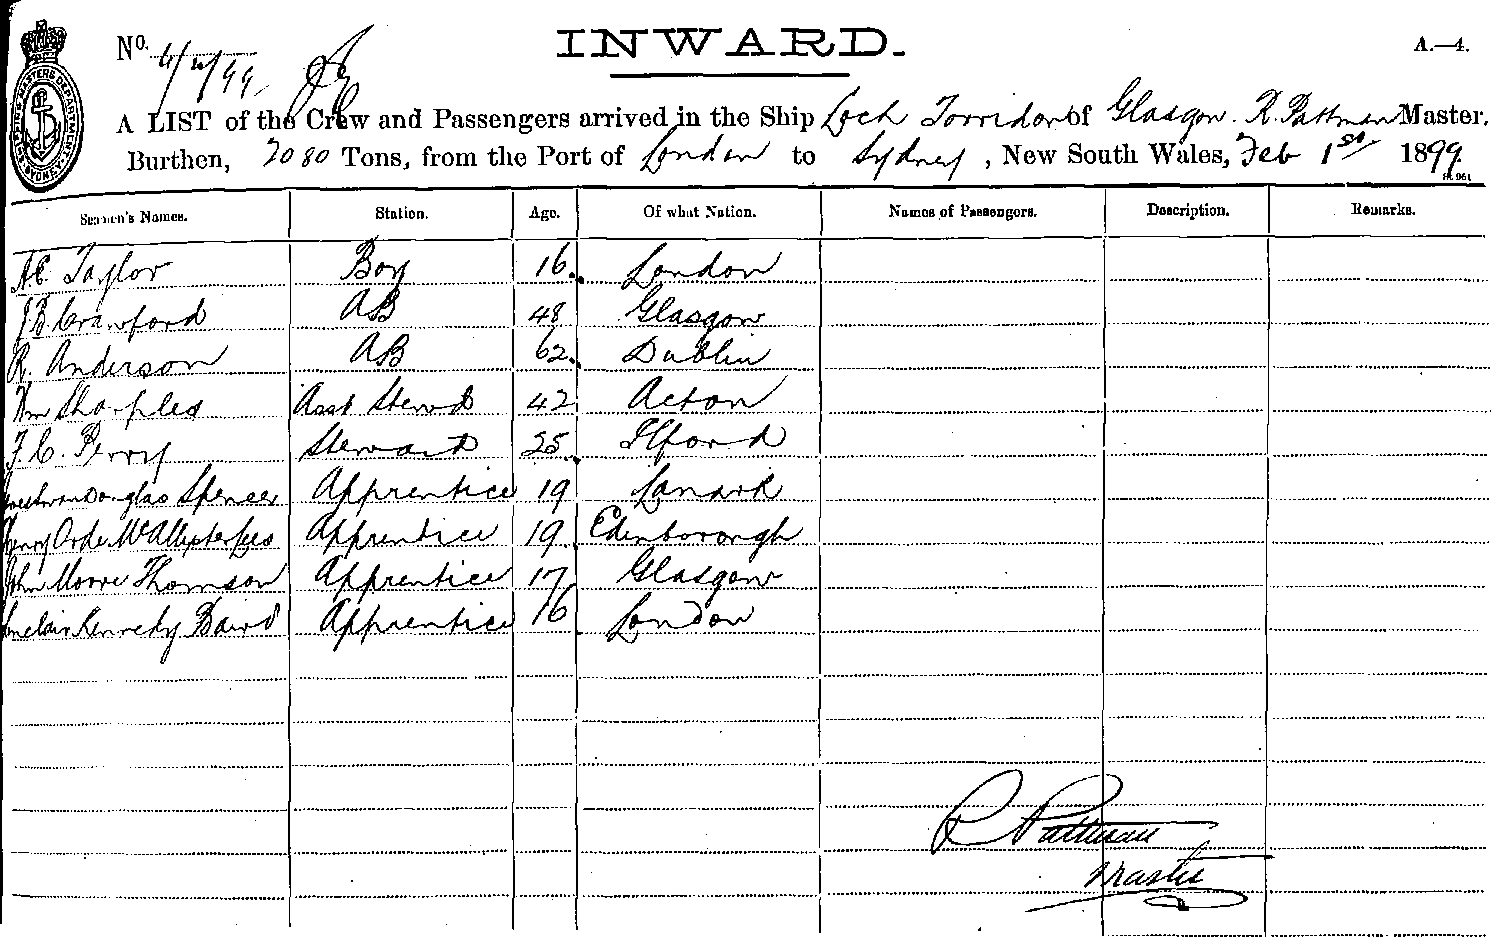 INWARD.
A.—4.
No. 4/2/99
A LIST of the Crew and Passengers arrived in the Ship Loch Torridon of Glasgow. R. Pattman Master,
Burthen, 2080 Tons, from the Port of London to Sydney, New South Wales, Feb 1st 1899
Seamen's Names. Station. Age. Of what Nation. Names of Passengers. Description. Remarks.
A.C. Taylor Boy 16 London
J B Crawford AB 48 Glasgow
R. Anderson AB 62 Dublin
Wm Sharples Asst Stewd 42 Acton
F. C. Perry Steward 25 Ilford
Douglas Spencer Apprentice 19 Lanark
Orde McAllister Lees Apprentice 19 Edinborough
John Moore Thomson Apprentice 17 Glasgow
Sinclair Kennedy Baird Apprentice 16 London
R Pattman
Master